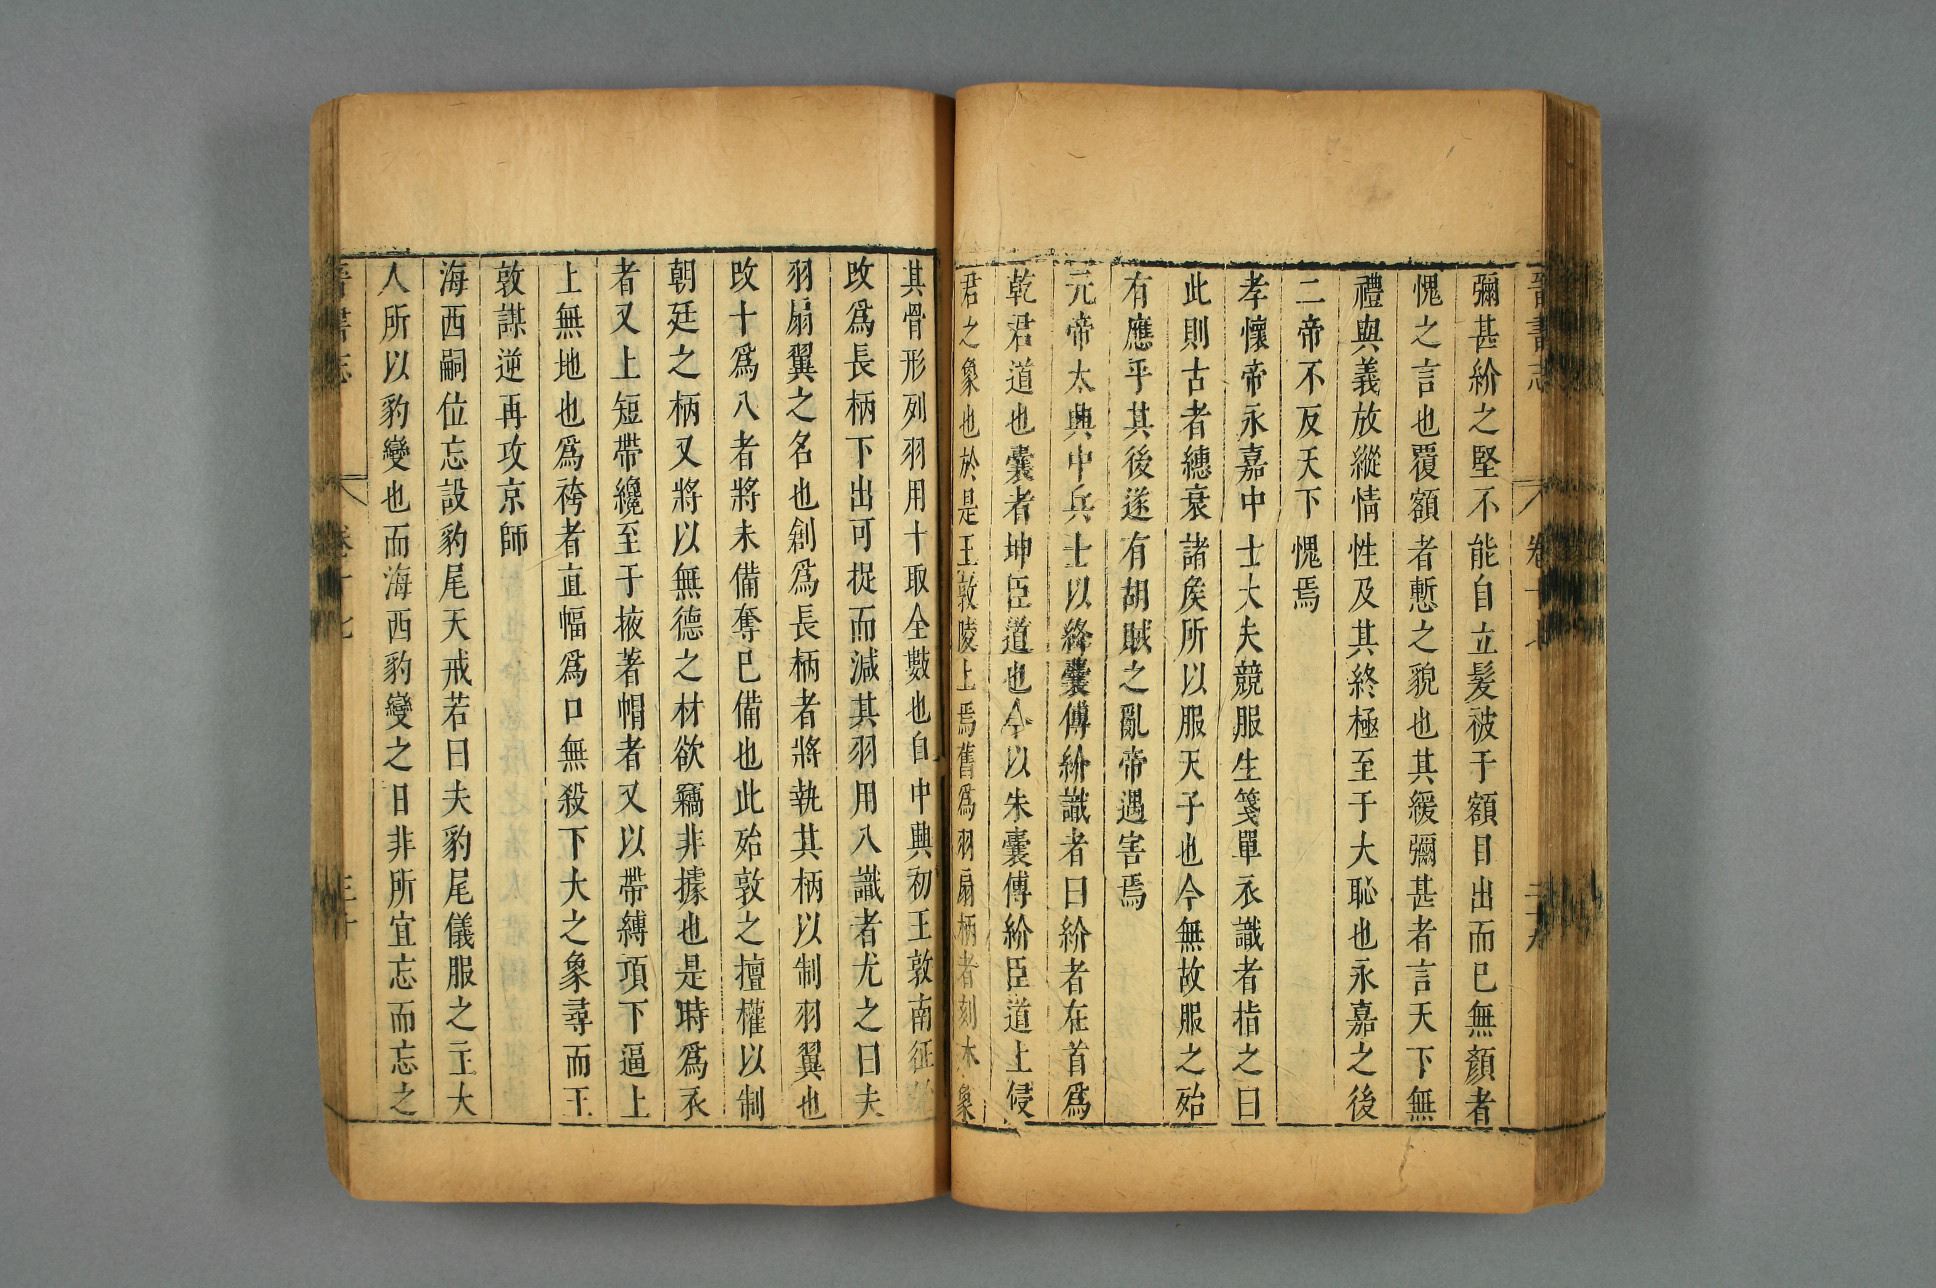 晉書志 卷十七 二十九
彌甚紒之堅不能自立髮被于額目出而已無顏者
愧之言也覆額者慙之貌也其緩彌甚者言天下無
禮與義放縱情性及其終極至于大恥也永嘉之後
二帝不反天下愧焉
孝懷帝永嘉中士大夫競服生箋單衣識者指之曰
此則古者繐衰諸矦所以服天子也今無故服之殆
有應乎其後遂有胡賊之亂帝遇害焉
元帝太興中兵士以絳囊傅紒識者曰紒者在首爲
乾君道也囊者坤臣道也今以朱囊傅紒臣道上侵
君之象也於是王敦陵上焉舊爲羽扇柄者刻木象
其骨形列羽用十取全數也自中興初王敦南征始
改爲長柄下出可捉而減其羽用八識者尤之曰夫
羽扇翼之名也創爲長柄者將執其柄以制羽翼也
改十爲八者將未備奪已備也此殆敦之擅權以制
朝廷之柄又將以無德之材欲竊非據也是時爲衣
者又上短帶纔至于掖著帽者又以帶縛項下逼上
上無地也爲袴者直幅爲口無殺下大之象尋而王
敦謀逆再攻京師
海西嗣位忘設豹尾天戒若曰夫豹尾儀服之主大
人所以豹變也而海西豹變之日非所宜忘而忘之
晉書志 卷十七 三十